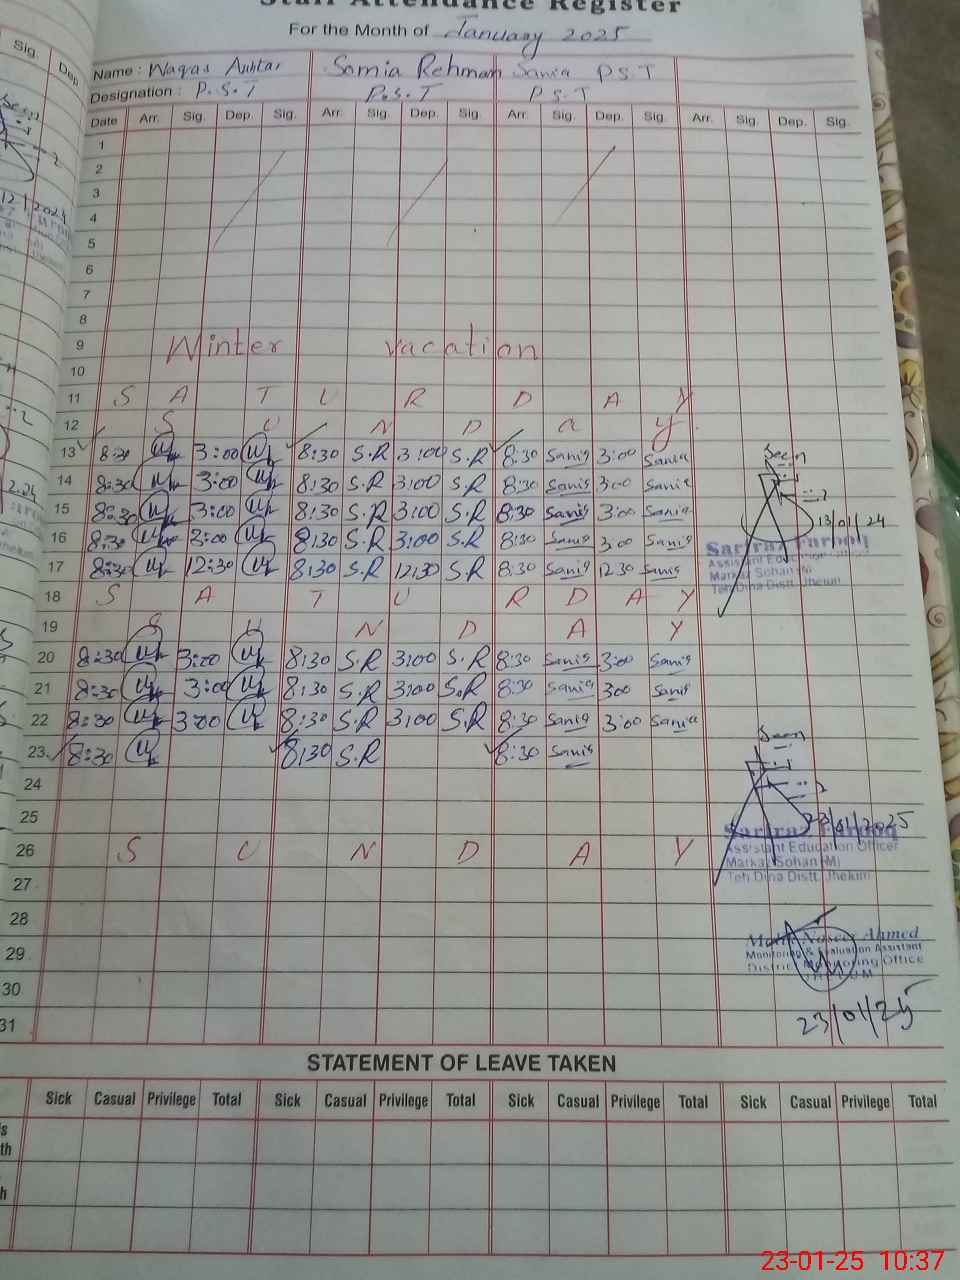 Staff Attendance Register
For the Month of January 2025
Name : Waqas Akhtar Samia Rehman Sania P.S.T
Designation : P.S.T P.S.T P.S.T
Date Arr. Sig. Dep. Sig. Arr. Sig. Dep. Sig. Arr. Sig. Dep. Sig. Arr. Sig. Dep. Sig.
1
2
3
4
5
6
7
8
9 Winter vacation
10
11 S A T U R D A Y
12 S U N D a y
13 8:30 3:00 8:30 S.R 3:00 S.R 8:30 Sania 3:00 Sania
14 8:30 3:00 8:30 S.R 3:00 S.R 8:30 Sania 3:00 Sania
15 8:30 3:00 8:30 S.R 3:00 S.R 8:30 Sania 3:00 Sania
16 8:30 3:00 8:30 S.R 3:00 S.R 8:30 Sania 3:00 Sania
17 8:30 12:30 8:30 S.R 12:30 S.R 8:30 Sania 12 30 Sania
18 S A T U R D A Y
19 S U N D A Y
20 8:30 3:00 8:30 S.R 3:00 S.R 8:30 Sania 3:00 Sania
21 8:30 3:00 8:30 S.R 3:00 S.R 8:30 Sania 300 Sania
22 8:30 3:00 8:30 S.R 3:00 S.R 8:30 Sania 3:00 Sania
23 8:30 8:30 S.R 8:30 Sania
24
25
26 S U N D A Y
27
28
29
30
31
Seen
13/01/24
Sarfraz Farooq
Assistant Education Officer
Markaz Sohan (M)
Teh Dina Distt. Jhelum
Seen
23/01/2025
Sarfraz Farooq
Assistant Education Officer
Markaz Sohan (M)
Teh Dina Distt. Jhelum
Naseer Ahmed
Monitoring & Evaluation Assistant
District Monitoring Office
JHELUM
23/01/25
STATEMENT OF LEAVE TAKEN
Sick Casual Privilege Total Sick Casual Privilege Total Sick Casual Privilege Total Sick Casual Privilege Total
23-01-25 10:37